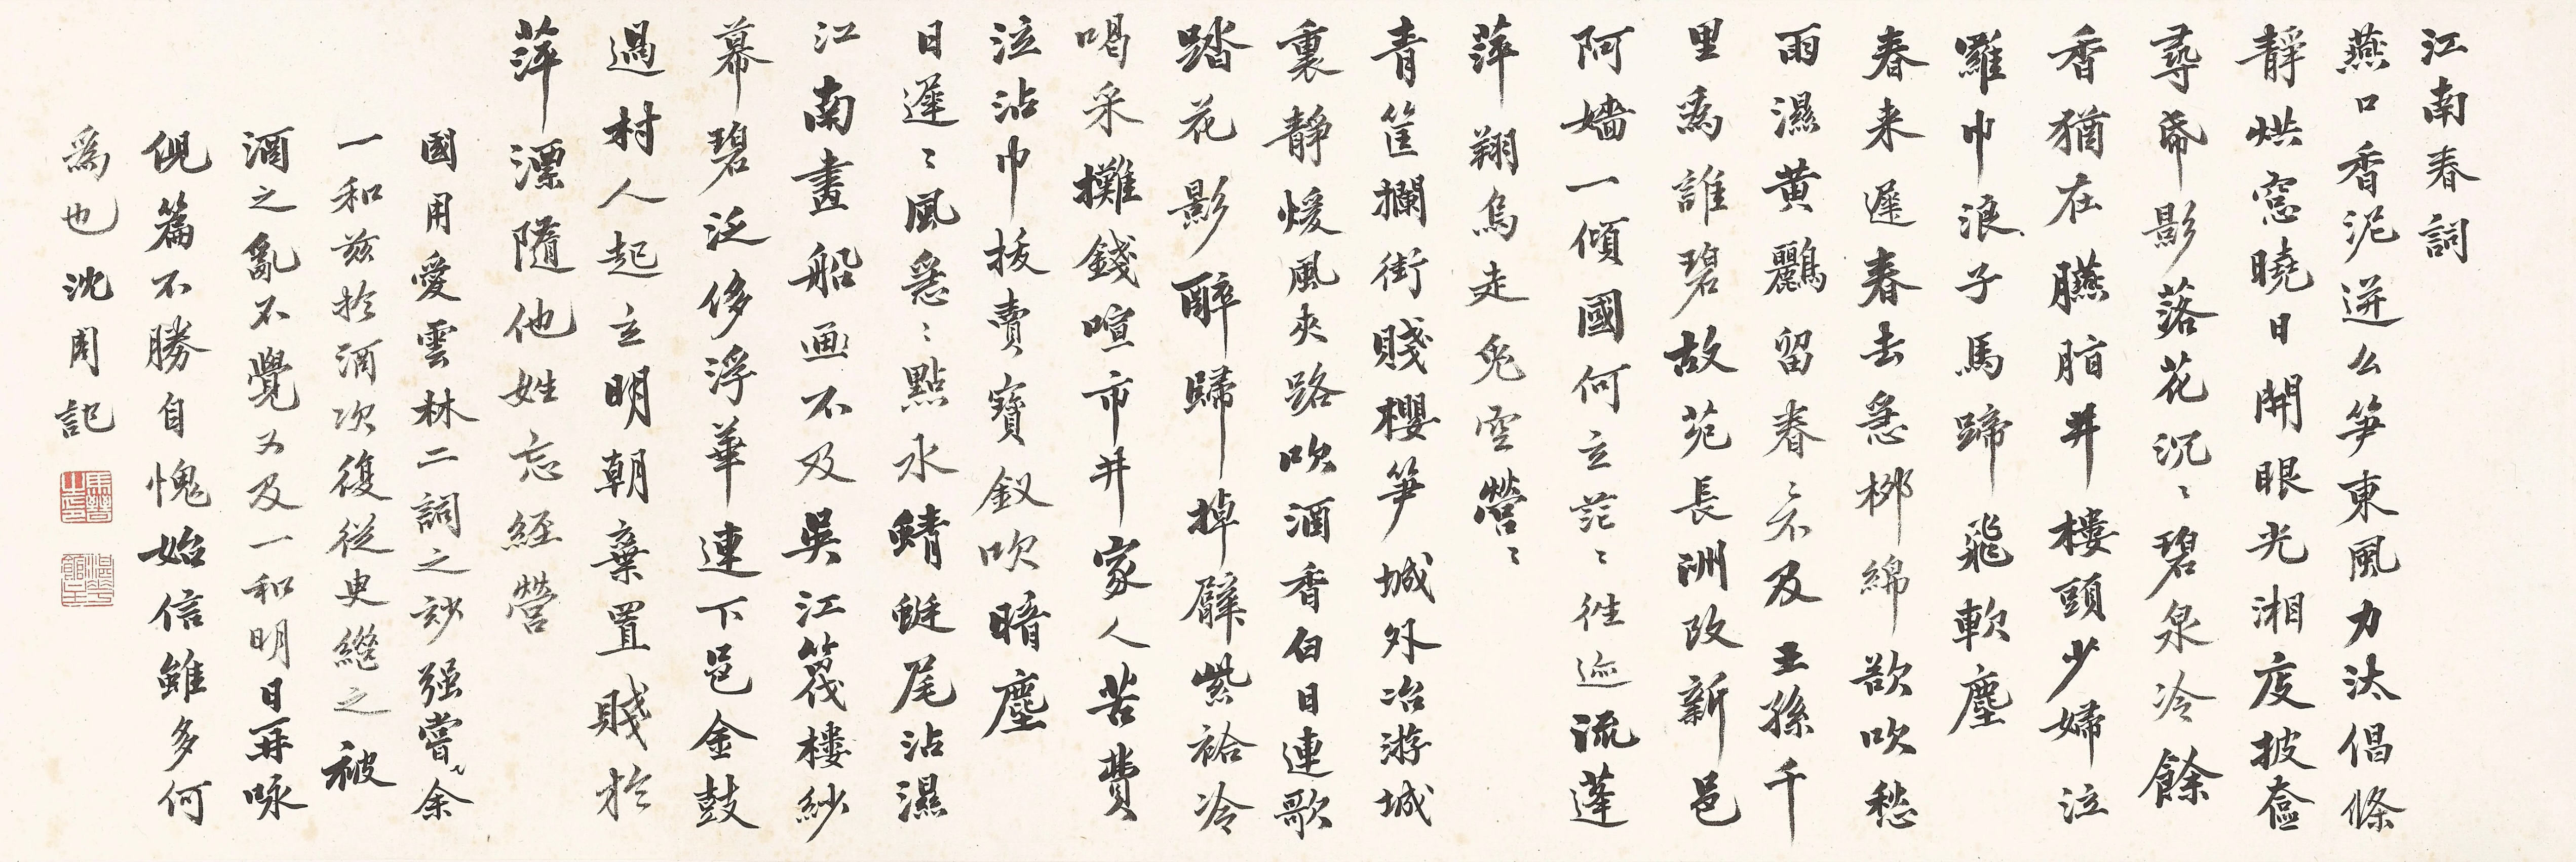 江南春詞
燕口香泥迸么笋東風力汰倡條
靜烘窓曉日開眼光湘庋披奩
尋帋影落花沉〻碧泉冷餘
香猶在臙脂井樓頭少婦泣
羅巾浪子馬蹄飛軟塵
春来遲春去急栁綿欲吹愁
雨濕黄鸝留春〻不及王孫千
里為誰碧故苑長洲改新邑
阿嬙一傾國何立茫〻徃迹流蓬
萍翔烏走兔空營〻
青筐攔街賤櫻笋城外冶游城
裏靜煖風夾路吹酒香白日連歌
踏花影醉歸掉臂紫袷冷
喝采攤錢喧市井家人苦費
泣沾巾拔賣寶釵吹暗塵
日遲〻風急〻點水蜻蜓尾沾濕
江南畫船画不及吴江筏樓紗
幕碧泛侈浮華連下邑金鼓
過村人起立明朝棄置賤於
萍漂隨他姓忘經營
國用愛雲林二詞之玅强嘗〻余
一和兹於酒次復從臾繼之被
酒之亂不覺又及一和明日再咏
倪篇不勝自愧始信雖多何
為也沈周記